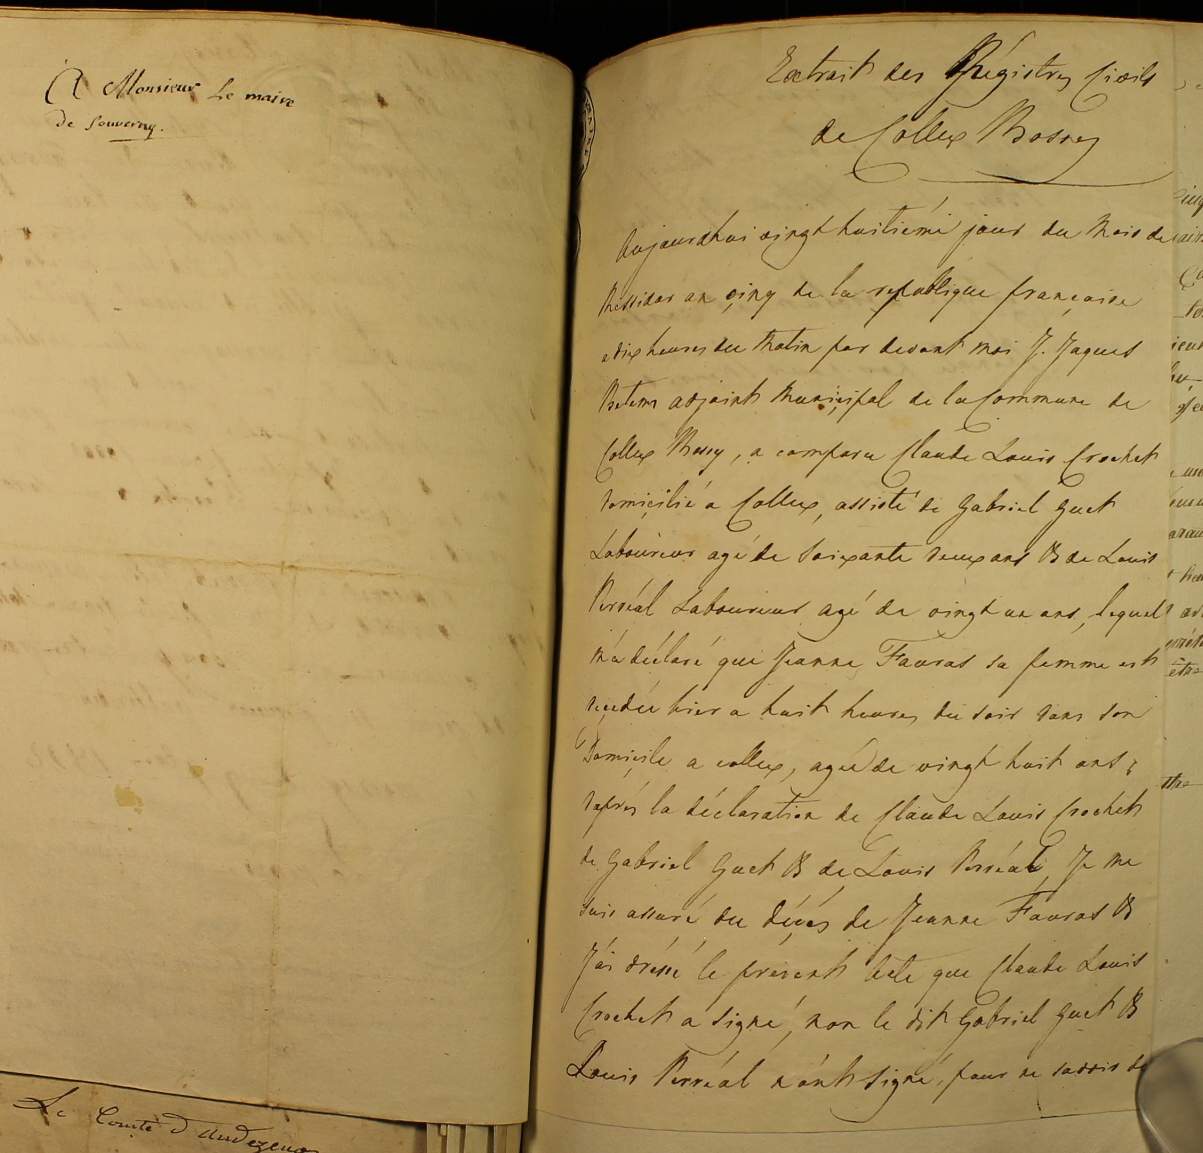 A Monsieur Le maire
De Sauverny.
Le Comte D Andezeno
Extrait des Régistres Civils
de Collex Bossy
Aujourdhui vingt huitiémé jour du Mois de
Messidor an cinq de la republique française
a dix heures du Matin par devant moi J. Jaques
adjoint Municipal de la Commune de
Collex Bossy, a comparu Claude Louis Crochet
domicilié a Collex, assisté de Gabriel Guet
Laboureur agé de soixante deux ans & de Louis
Perréal Laboureur agé de vingt un ans, lequel
m'a déclaré que Jeanne Favras sa femme est
decedée hier a huit heures du soir dans son
Domicile a collex, ageé de vingt huit ans;
d'après la déclaration de Claude Louis Crochet
de Gabriel Guet & de Louis Perréal, Je me
suis assuré du décés de Jeanne Favras &
J'ai dréssé le présent acte que Claude Louis
Crochet a signé, non le dit Gabriel Guet &
Louis Perréal n'ont signé, pour ne savoir de